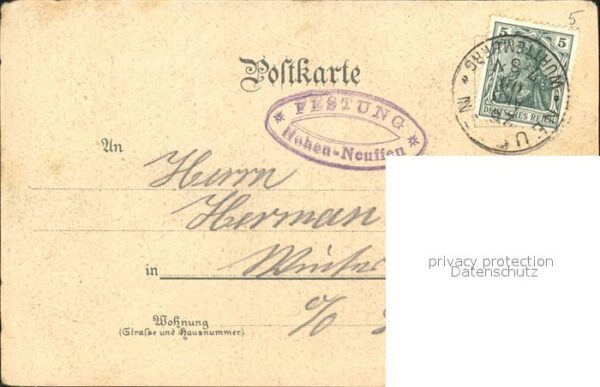 5
Postkarte
5 5
DEUTSCHES REICH
WÜRTTEMBERG
* FESTUNG *
Hohen-Neuffen
An
Herrn
Herman
in Winter
privacy protection
Datenschutz
o/o
Wohnung
(Straße und Hausnummer)